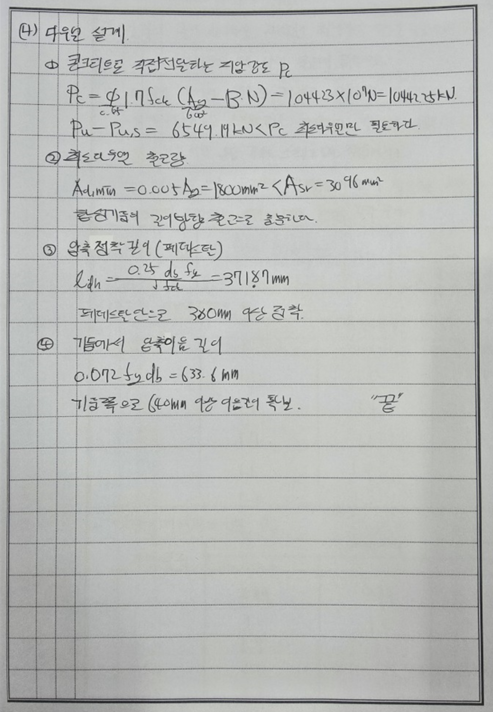 (4) 다우얼 설계
① 콘크리트로 직접전달하는 지압강도 Pc
Pc = ϕ 1.7 fck (A2 - B·N) = 104423×10³N = 10442.25kN
0.65 600²
Pu - Pu,s = 6549.19kN < Pc 최소다우얼만 필요하다.
② 최소다우얼 철근량
Ad,min = 0.005Ag = 1800mm² < Asr = 3096mm²
합성기둥의 길이방향 철근으로 충분하다.
③ 압축정착길이 (페데스탈)
ldh = 0.25 db fy / √fck = 371.87mm
페데스탈단으로 380mm 이상 정착.
④ 기둥에서 압축이음길이
0.072 fy db = 633.6mm
기둥쪽으로 640mm 이상 이음길이 확보. "끝"